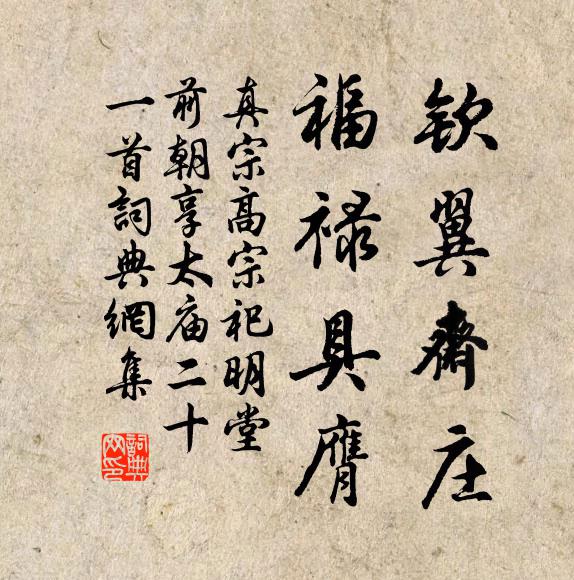 钦翼齋庄
福禄具膺
真宗高宗祀明堂
前朝享太庙二十
一首詞典網集
詞典网印